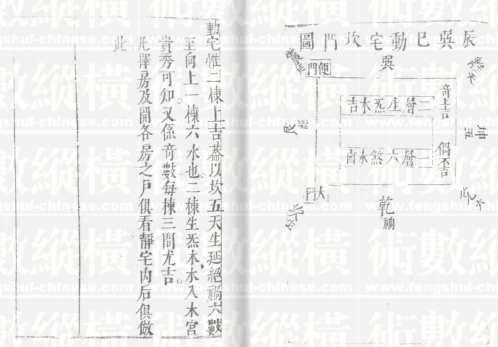 辰巽巳動宅坎門圖
巽
便門
二層生炁木吉
二層六煞水凶
坤
艮
大門
乾
禍
動宅惟二棟上吉蓋以坎五天生延絕禍六數
至向上一棟六水也二棟生炁木水入木宮
貴秀可知又係奇數每棟三間尤吉
凡擇房及開各房之戶俱看靜宅内后俱倣
此